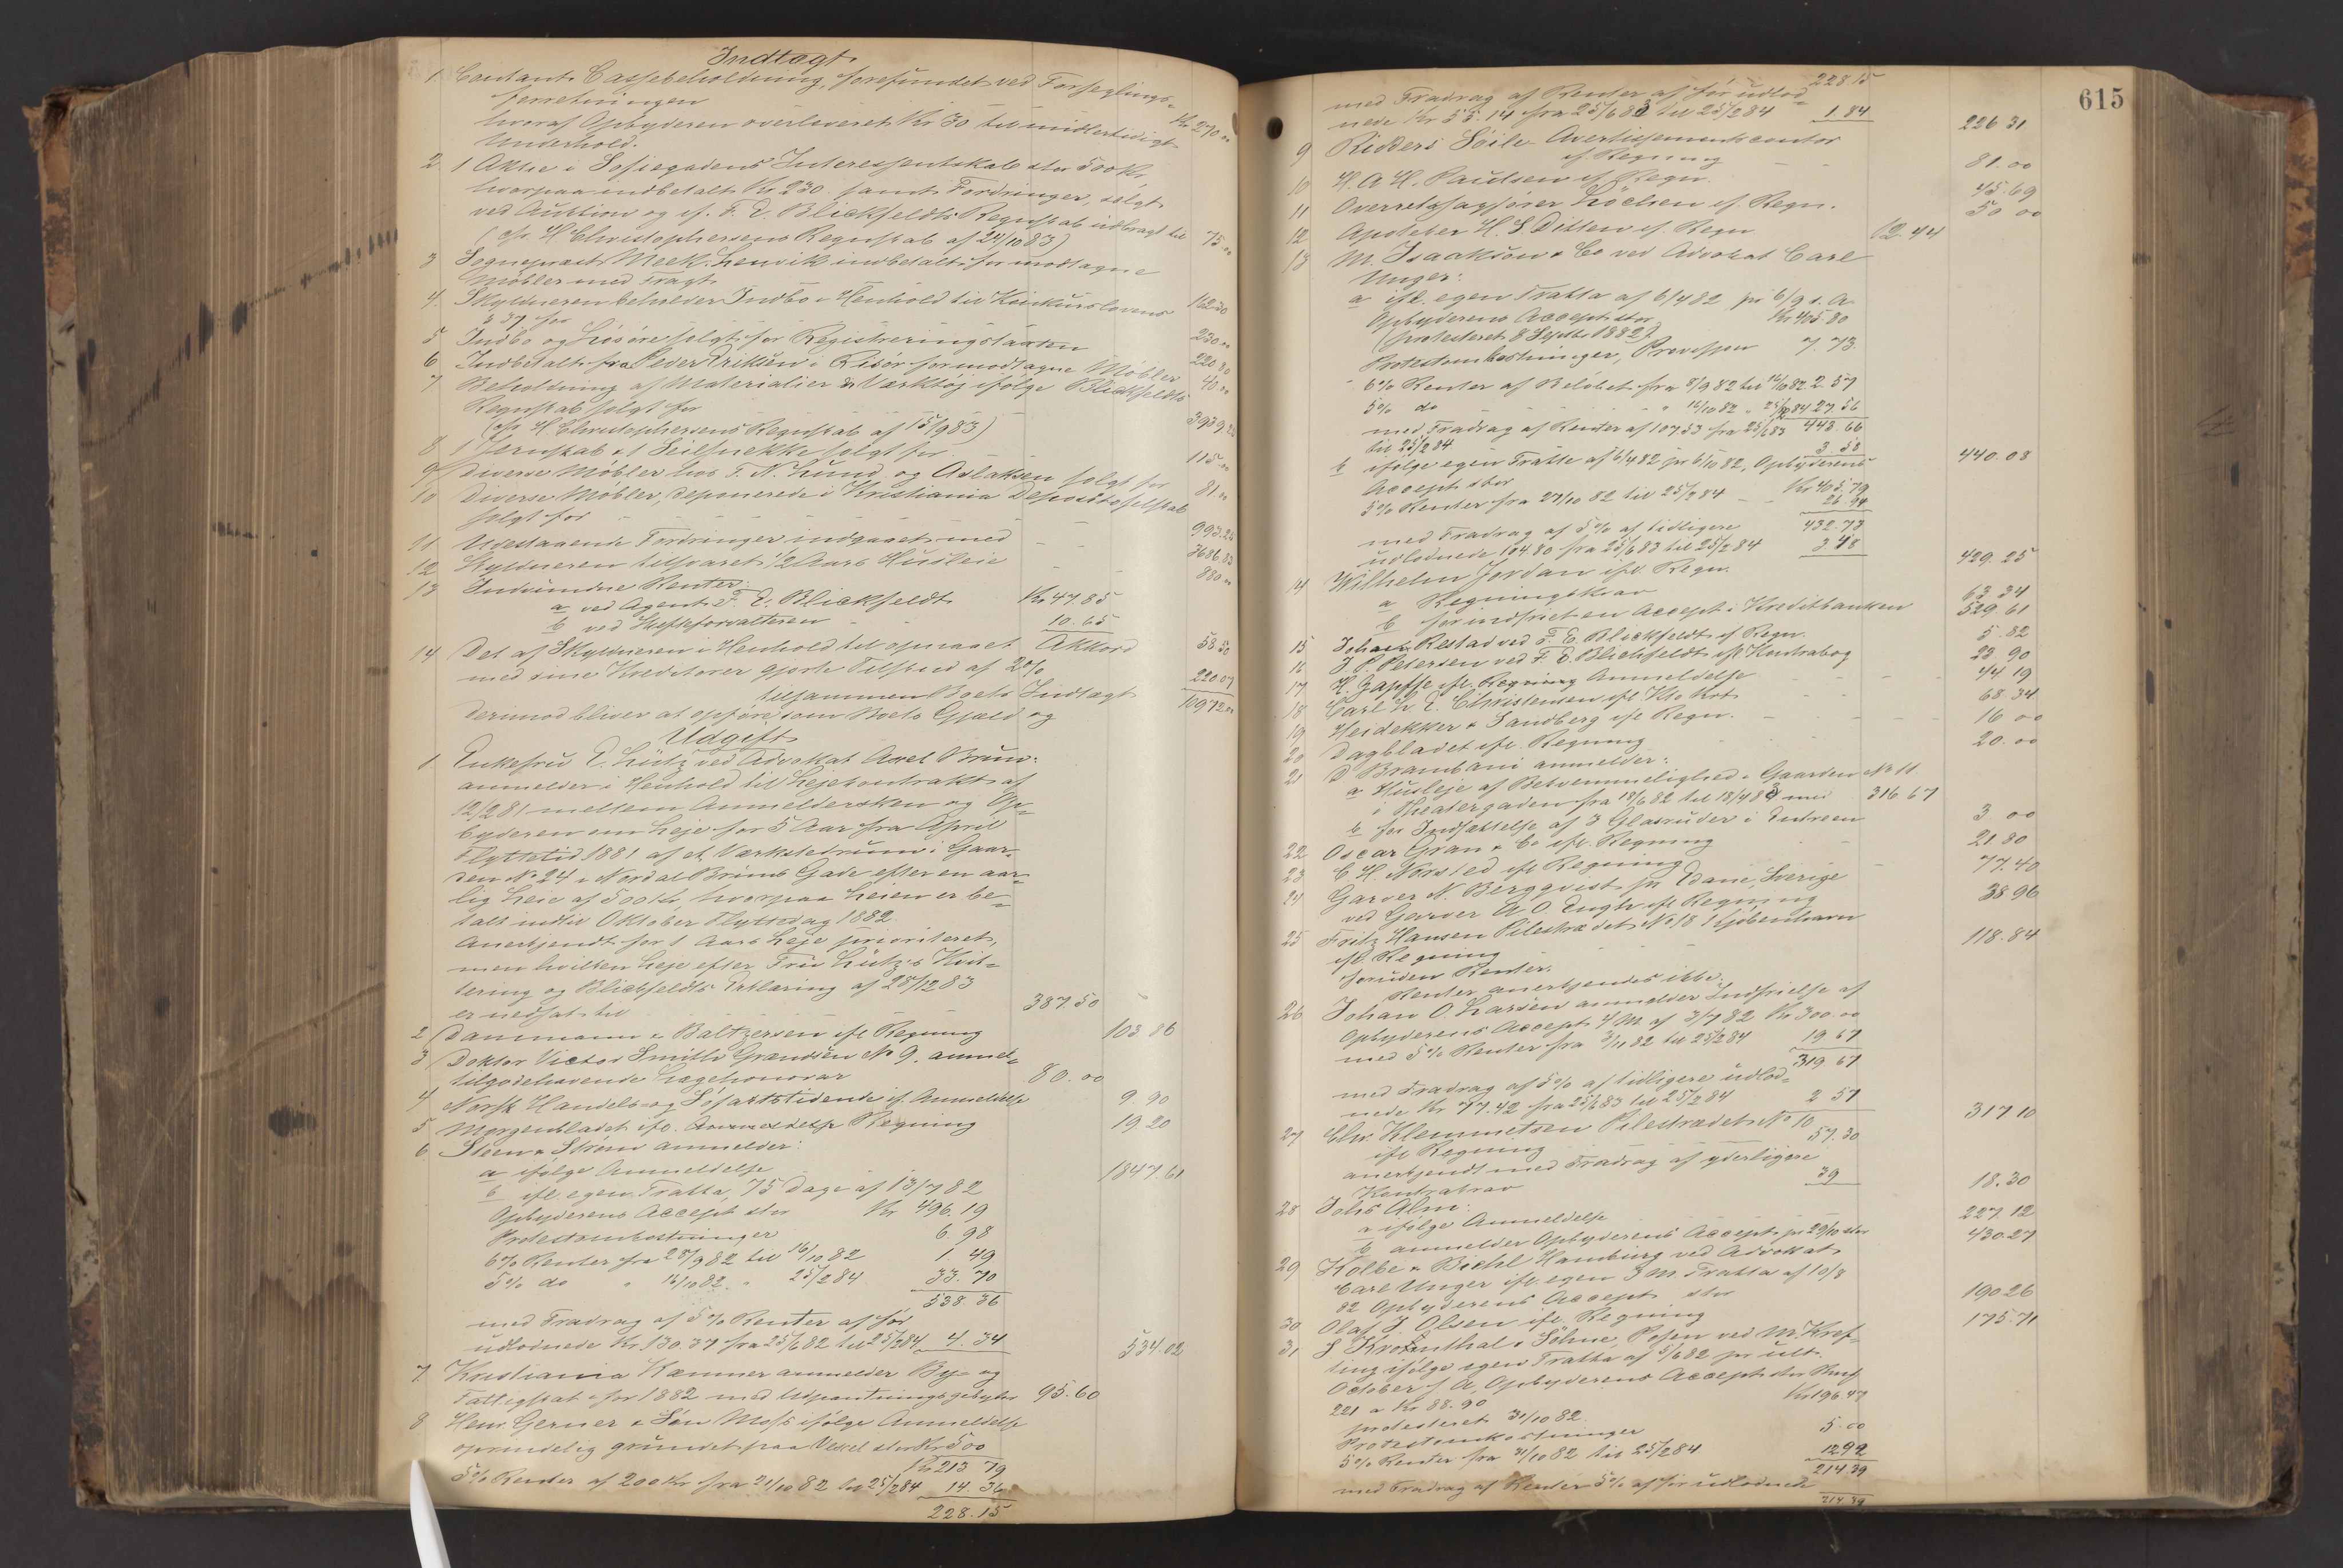 Indtægt
1 Contant Cassebeholdning, forefundet ved Forseglings-
forretningen Kr 270 00
hvoraf Opbyderen overleveret Kr 30 til midlertidigt
Underhold.
2 1 Aktie i Sofiegadens Interessentskab stor 500 Kr
hvorpaa indbetalt Kr 230 samt Fordringer, solgt
ved Auktion og if. F. E. Blickfeldts Regnskab udbragt til 75 00
(cfr H Christophersens Regnskab af 24/10 83)
3 Sogneprest Meek. Lenvik indbetalt for modtagne
Møbler med Fragt 162 30
4 Skyldneren beholder Indbo i Henhold til Konkurslovens
§ 37 for 230 00
5 Indbo og Løsøre solgt for Registreringstaxten 220 80
6 Indbetalt fra Peder Eriksen i Risør for modtagne Møbler 40 00
7 Beholdning af Materialier & Værktøj ifølge Blickfeldts
Regnskab solgt for 3939
(cfr H Christophersens Regnskab af 15/9 83)
8 1 Jernskab & 1 solgt for 115 00
9 Diverse Møbler hos T. N. Lund og Aslaksen solgt for 81 00
10 Diverse Møbler, deponerede i Kristiania Depositoselskab
solgt for 993.24
11 Udestaaende Fordringer indgaaet med 3686.83
12 Skyldneren tilsvaret 1/2 Aars Husleie 880 00
13 Indvundne Renter:
a ved Agent F. E. Blickfeldt Kr 47.85
b ved Skifteforvalteren 10.65 58 50
14 Det af Skyldneren i Henhold til opnaaet Akkord
med sine Kreditorer gjorte Tilskud af 2% 220 07
tilsammen Boets Indtægt 10972
Derimod bliver at opføre som Boets Gjæld og
Udgift
1 Enkefru E. Lütz ved Advokat Axel Bruun.
anmelder i Henhold til Lejekontrakt af
12/2 81 mellem Anmeldersken og Op-
byderen om Leje for 5 Aar fra April
Flyttetid 1881 af et Værkstedrum i Gaar-
den No 24 i Nordal Bruns Gade efter en aar-
lig Leie af 500 Kr, hvorpaa Leien er be-
talt indtil Oktober Flyttedag 1882.
Anerkjendt for 1 Aars Leje prioriteret,
men hvilken Leje efter Fru Lütz's Kvit-
tering og Blickfeldts Erklæring af 28/12 83
er nedsat til 387.50
2 Dammann & Baltzersen ifl Regning 103.86
3 Doktor Victor Smith Grændsen No 9. anmel-
tilgodehavende Lægehonorar 80.00
4 Norsk Handels- og Søfartstidende if. Anmeldelse 9.90
5 Morgenbladet ifl. Anmeldelse Regning 19.20
6 Steen & Strøm anmelder:
a ifølge Anmeldelse 1847.61
b ifl. egen Tratta, 75 Dage af 13/7 82
Opbyderens Accept stor Kr 496.19
Protestomkostninger 6.98
6% Renter fra 28/9 82 til 16/10 82 1.49
5% do " 16/10 82 " 25/2 84 33.70
538.36
med Fradrag af 5% Renter af før
udlodnede Kr. 130.37 fra 25/6 82 til 25/2 84 4.34 534.02
7 Kristiania Kæmner anmelder By- og
Fattigskat for 1882 med Udpantningsgebyhr 95.60
8 Henr. Gerner & Søn Moss ifølge Anmeldelse
oprindelig grundet paa Vexel stor Kr 500
Kr 213 79
5% Renter af 200 Kr fra 21/10 82 til 25/2 84 14.36
228.15
615
228 15
med Fradrag af Renter af før udlod-
nede Kr 55.14 fra 25/6 83 til 25/2 84 1.84 226 31
9 Ridderi Söile Avertissementscontor
if Regning 81.00
10 H. A H. Paulsen if. Regn. 45.69
11 Overretssagfører Löchen if. Regn. 50 00
12 Apoteker H. S Ditten if Regn 12.44
13 M. Isaakson & Co ved Advokat Carl
Unger:
a ifl. egen Tratta af 6/4 82 pr 6/9 s. A.
Opbyderens Accept stor Kr 405.80
(protesteret 8 Septbr 1882)
Protestomkostninger, Provision 7.73.
6% Renter af Beløbet fra 8/9 82 til 16/10 82 2.57
5% do " 16/10 82 " 25/2 84 27.56
med Fradrag af Renter af 107 53 fra 25/6 83 443.66
til 25/2 84 3.58 440.08
b ifølge egen Tratte af 6/4 82 pr 6/10 82, Opbyderens
Accept stor Kr 405.79
5% Renter fra 27/10 82 til 25/2 84 26.94
432.73
med Fradrag af 5% af tidligere
udlodnede 104.80 fra 25/6 83 til 25/2 84 3.48 429.25
14 Wilhelm Jordan ifl. Regn.
a Regningskrav 63.34
b for indfriet en Accept i Kreditbanken 529.61
15 Johan Restad ved F. E. Blickfeldt if Regn. 5.82
16 J. P. Petersen ved F. E. Blickfeldt ifl Kontrabog 23.90
17 H. Zapffe ifl. Regning Anmeldelse 44 19
18 Carl L. E. Christensen ifl Kto Krt 68.34
19 Heidekker & Sandberg ifl Regn. 16 00
20 Dagbladet ifl. Regning 20.00
21 D Brambani anmelder:
a Husleje af Bekvemmelighed i Gaarden No 11
i Theatergaden fra 18/6 82 til 18/4 83 med 316.67
b for Indsættelse af 3 Glasruder i Entreen 3 00
22 Oscar Gran & Co ifl. Regning 21.80
23 C H. Norsted ifl Regning 77.40
24 Garver N. Bergqvist pr Edane, Sverige
ved Garver A. O. Engh ifl Regning 38 96
25 Fritz Hansen Pilestrædet No 18 Kjøbenhavn
ifl. Regning 118.84
foruden Renter.
Renter anerkjendes ikke.
26 Johan O. Larsen anmelder Indfrielse af
Opbyderens Accept 4 M. af 3/7 82 Kr 300.00
med 5% Renter fra 3/11 82 til 25/2 84 19 67
319 67
med Fradrag af 5% af tidligere udlod-
nede Kr 77.42 fra 25/6 83 til 25/2 84 2 57 317 10
27 Chr. Klemmetsen Pilestrædet No 10
ifl Regning 57.30
anerkjendt med Fradrag af yderligere
Kontrakrav 39 18.30
28 Johs Alm:
a ifølge Anmeldelse 227.12
b anmelder Opbyderens Accept pr 29/10 stor 430.27
29 Kolbe & Biehl Hamburg ved Advokat
Carl Unger ifl. egen 3 M. Tratta af 10/8
82 Opbyderens Accept stor 190 26
30 Olaf J. Olsen ifl. Regning 175.71
31 S Krotenthal & Söhne, Posen ved M. Kref-
ting ifølge egen Tratta af 5/6 82 pr ult.
October s. A, Opbyderens Accept stor Rmk
221 a Kr 88.90 Kr 196.47
protesteret 31/10 82.
Protestomkostninger 5.00
5% Renter fra 31/10 82 til 25/2 84 12.92
214.39
med Fradrag af Renter 5% af før udlodnede
214.39